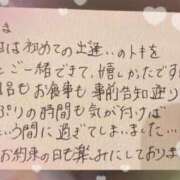 ま
は初めての出逢いのトキ
ご一緒できて、嬉しかったです
名もお食事も事前告知通り
ぷりの時間も気が付けば
という間に過ぎてしまいました…
お約束の日も楽みにしており